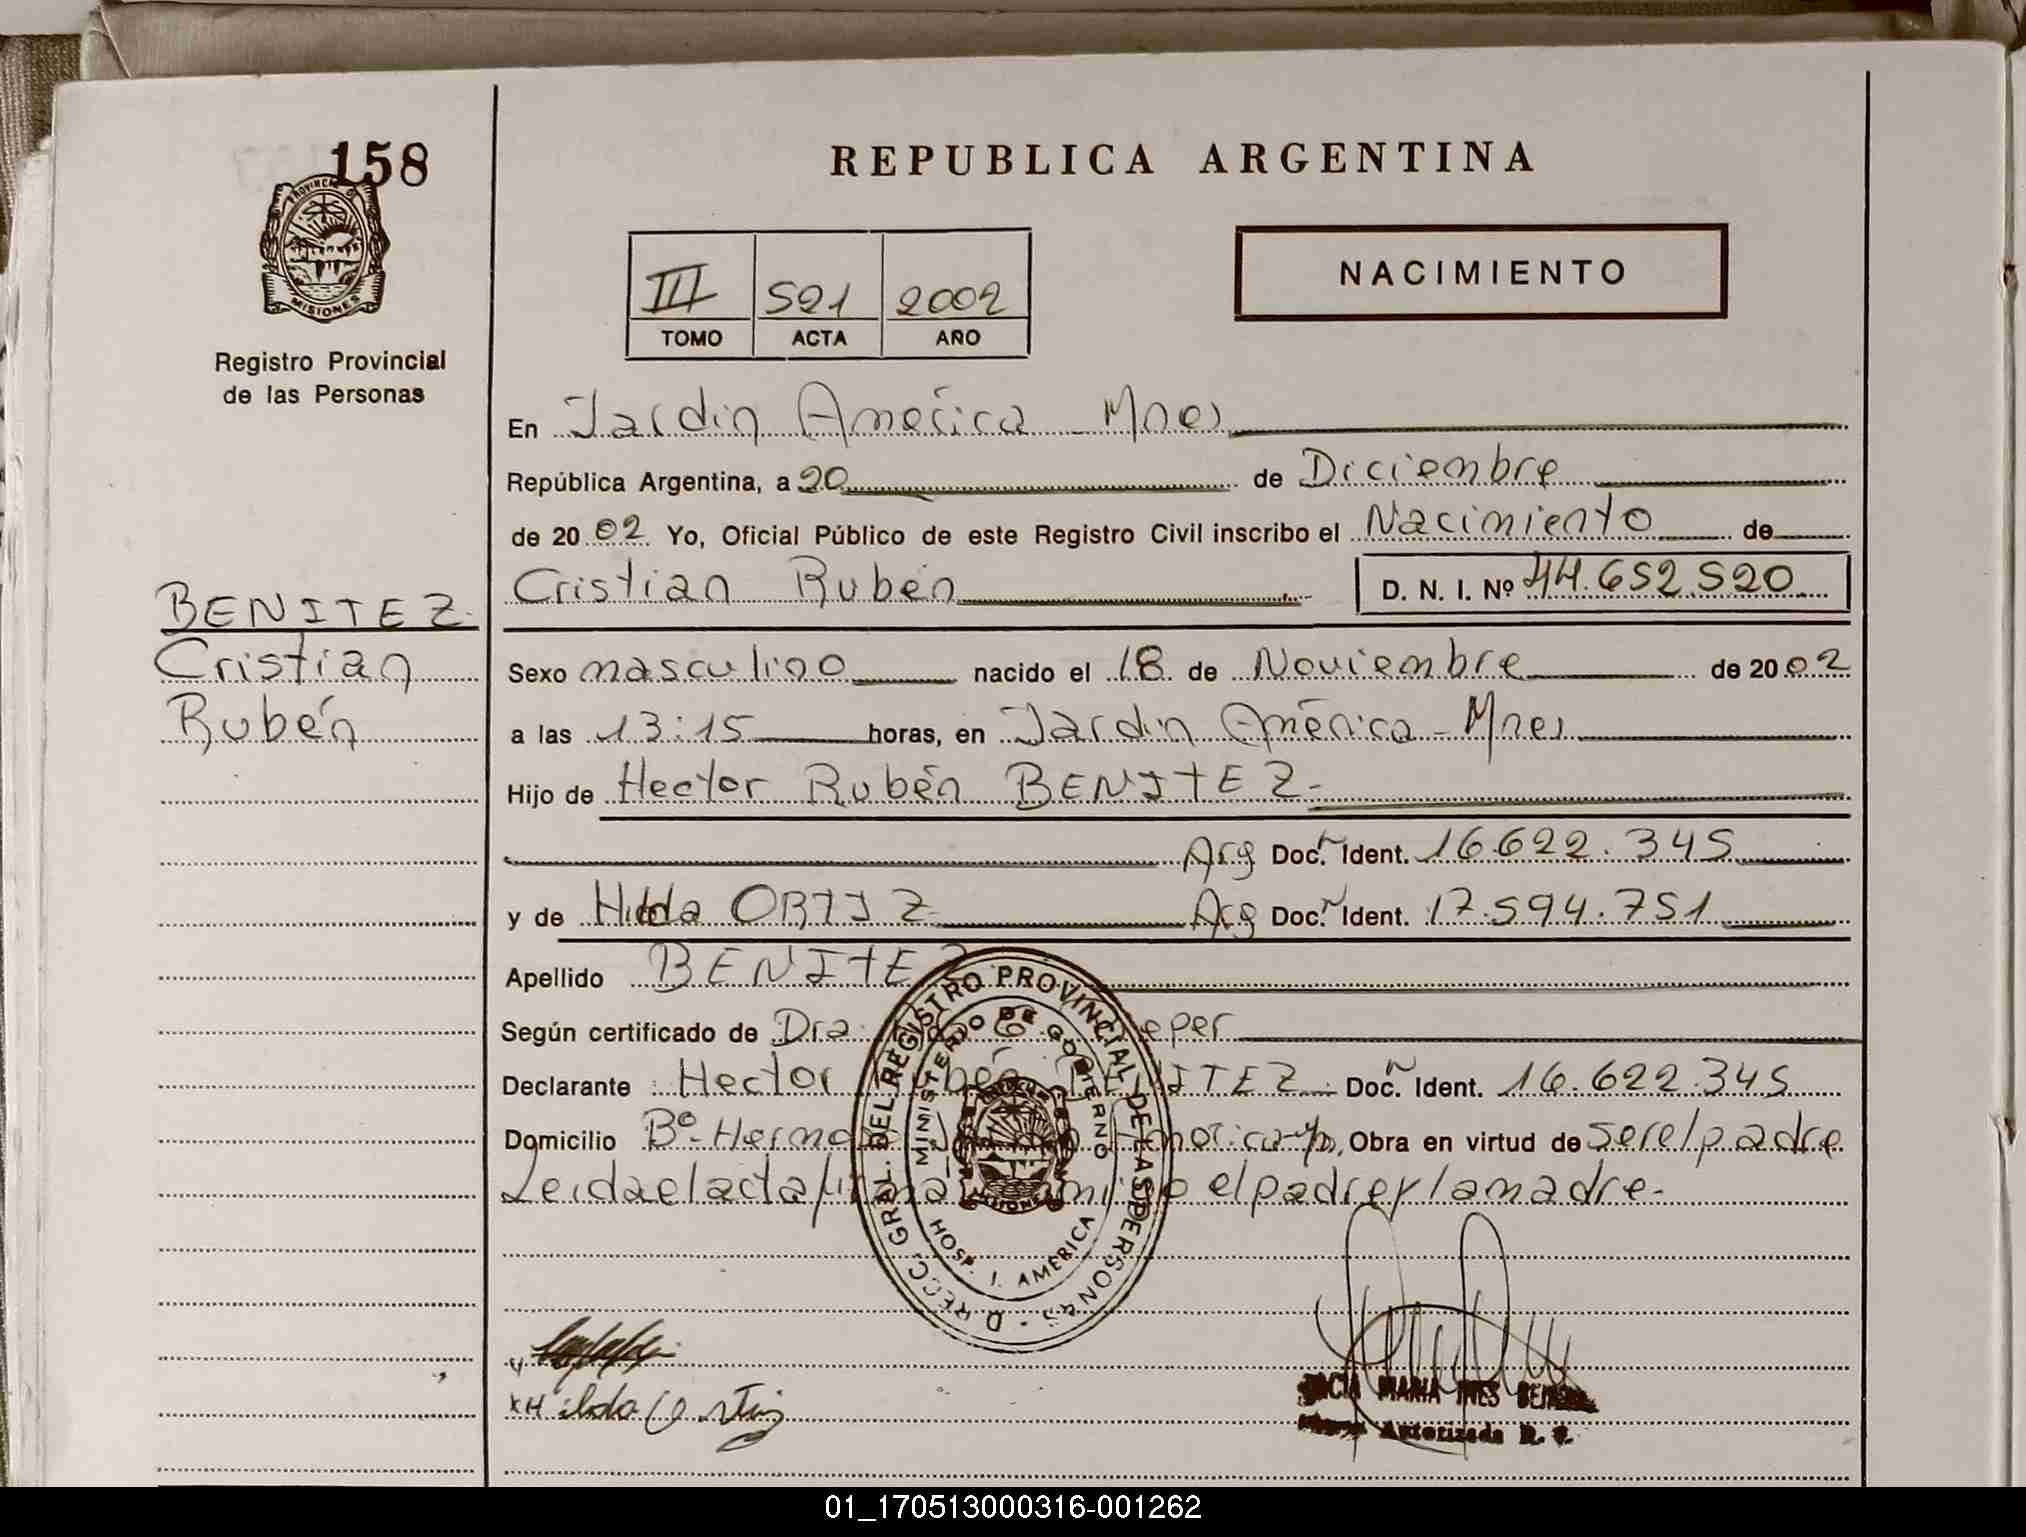 158
REPUBLICA ARGENTINA
PROVINCIA DE MISIONES
III 521 2002
TOMO ACTA AÑO
NACIMIENTO
Registro Provincial
de las Personas
En Jardin América - Mnes
República Argentina, a 20 de Diciembre
de 2002 Yo, Oficial Público de este Registro Civil inscribo el Nacimiento de
Cristian Rubén D. N. I. Nº 44.652.520
BENITEZ
Cristian
Rubén
Sexo masculino nacido el 18 de Noviembre de 2002
a las 13:15 horas, en Jardin América - Mnes
Hijo de Hector Rubén BENITEZ
Arg Doc. Ident. 16.622.345
y de Hilda ORTIZ Arg Doc. Ident. 17.594.751
Apellido BENITEZ
Según certificado de Dra.
Declarante Hector Rubén BENITEZ Doc. Ident. 16.622.345
Domicilio Bº Obra en virtud de ser el padre
Leida el acta el padre y la madre.
D RECC. GRAL. DEL REGISTRO PROVINCIAL DE LAS PERSONAS
MINISTERIO DE GOBIERNO
MISIONES
HOSP. J. AMERICA
Hilda Ortiz
MARIA INES
Autorizada
01_170513000316-001262